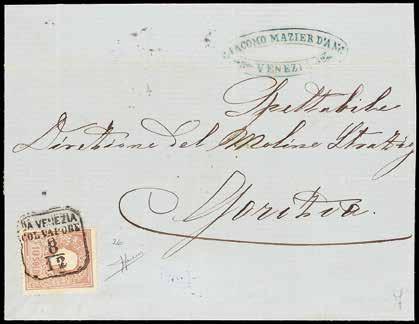 GIACOMO MAZIER D'ANG
VENEZIA
Spettabile
Direzione del Molino Stratzig
Gorizia.
DA VENEZIA
COL VAPORE
8
12
10 SOLDI
26